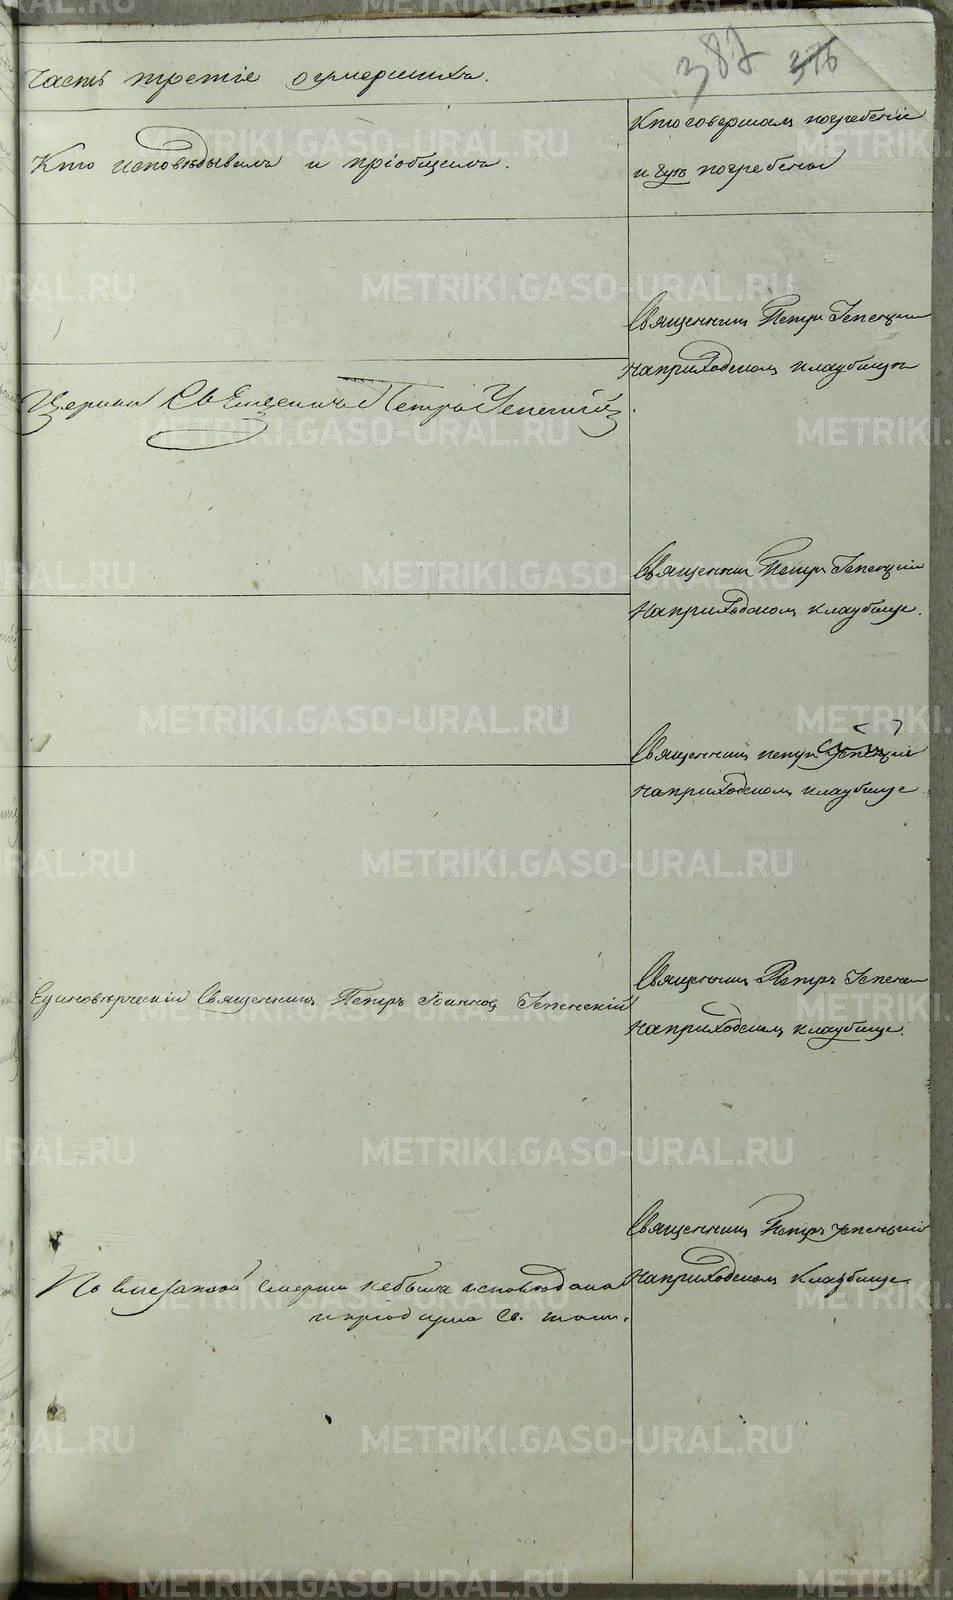 387 376
Часть третіе оумершихъ.
Кто исповѣдывалъ и пріобщалъ.
Кто совершалъ погребеніе
и гдѣ погребены
Священникъ Петръ Успенскій
на приходскомъ кладбищѣ
Петръ Успенскій
Священникъ Петръ Успенскій
На приходскомъ кладбище.
Священникъ петръ Успенскій
на приходскомъ кладбище
Единовѣрческій Священникъ Петръ Іоанновъ Успенскій
Священникъ Петръ Успенскій
на приходскомъ кладбище.
Священникъ Петръ успенскій
на приходскомъ кладбище
По внезапной смерти небыла исповѣдана
Св. таин.
METRIKI.GASO-URAL.RU